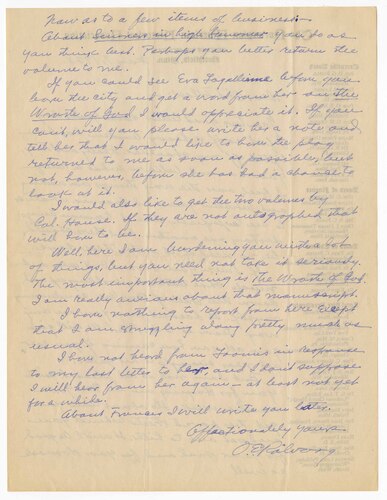 Now as to a few items of business—
About Sinners in high Summer you do as
you think best. Perhaps you better return the
volume to me.
If you could see Eva before you
leave the city and get a word from her on The
Wrath of God I would appreciate it. If you
can't, will you please write her a note and
tell her that I would like to have the play
returned to me as soon as possible, but
not, however, before she has had a chance to
look at it.
I would also like to get the two volumes by
Col. House. If they are not autographed that
will have to be.
Well, here I am burdening you with a lot
of things, but you need not take it seriously.
The most important thing is The Wrath of God.
I am really anxious about that manuscript.
I have nothing to report from here except
that I am struggling along pretty much as
usual.
I have not heard from in response
to my last letter to her, and I don't suppose
I will hear from her again — at least not yet
for a while.
About Frances I will write you later.
Affectionately yours,
O.E. Rölvaag